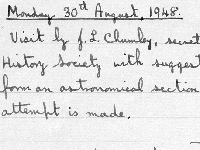 Monday 30th August, 1948.
Visit by J. L. Chumley, secret
History Society with suggest
form an astronomical section
attempt is made.